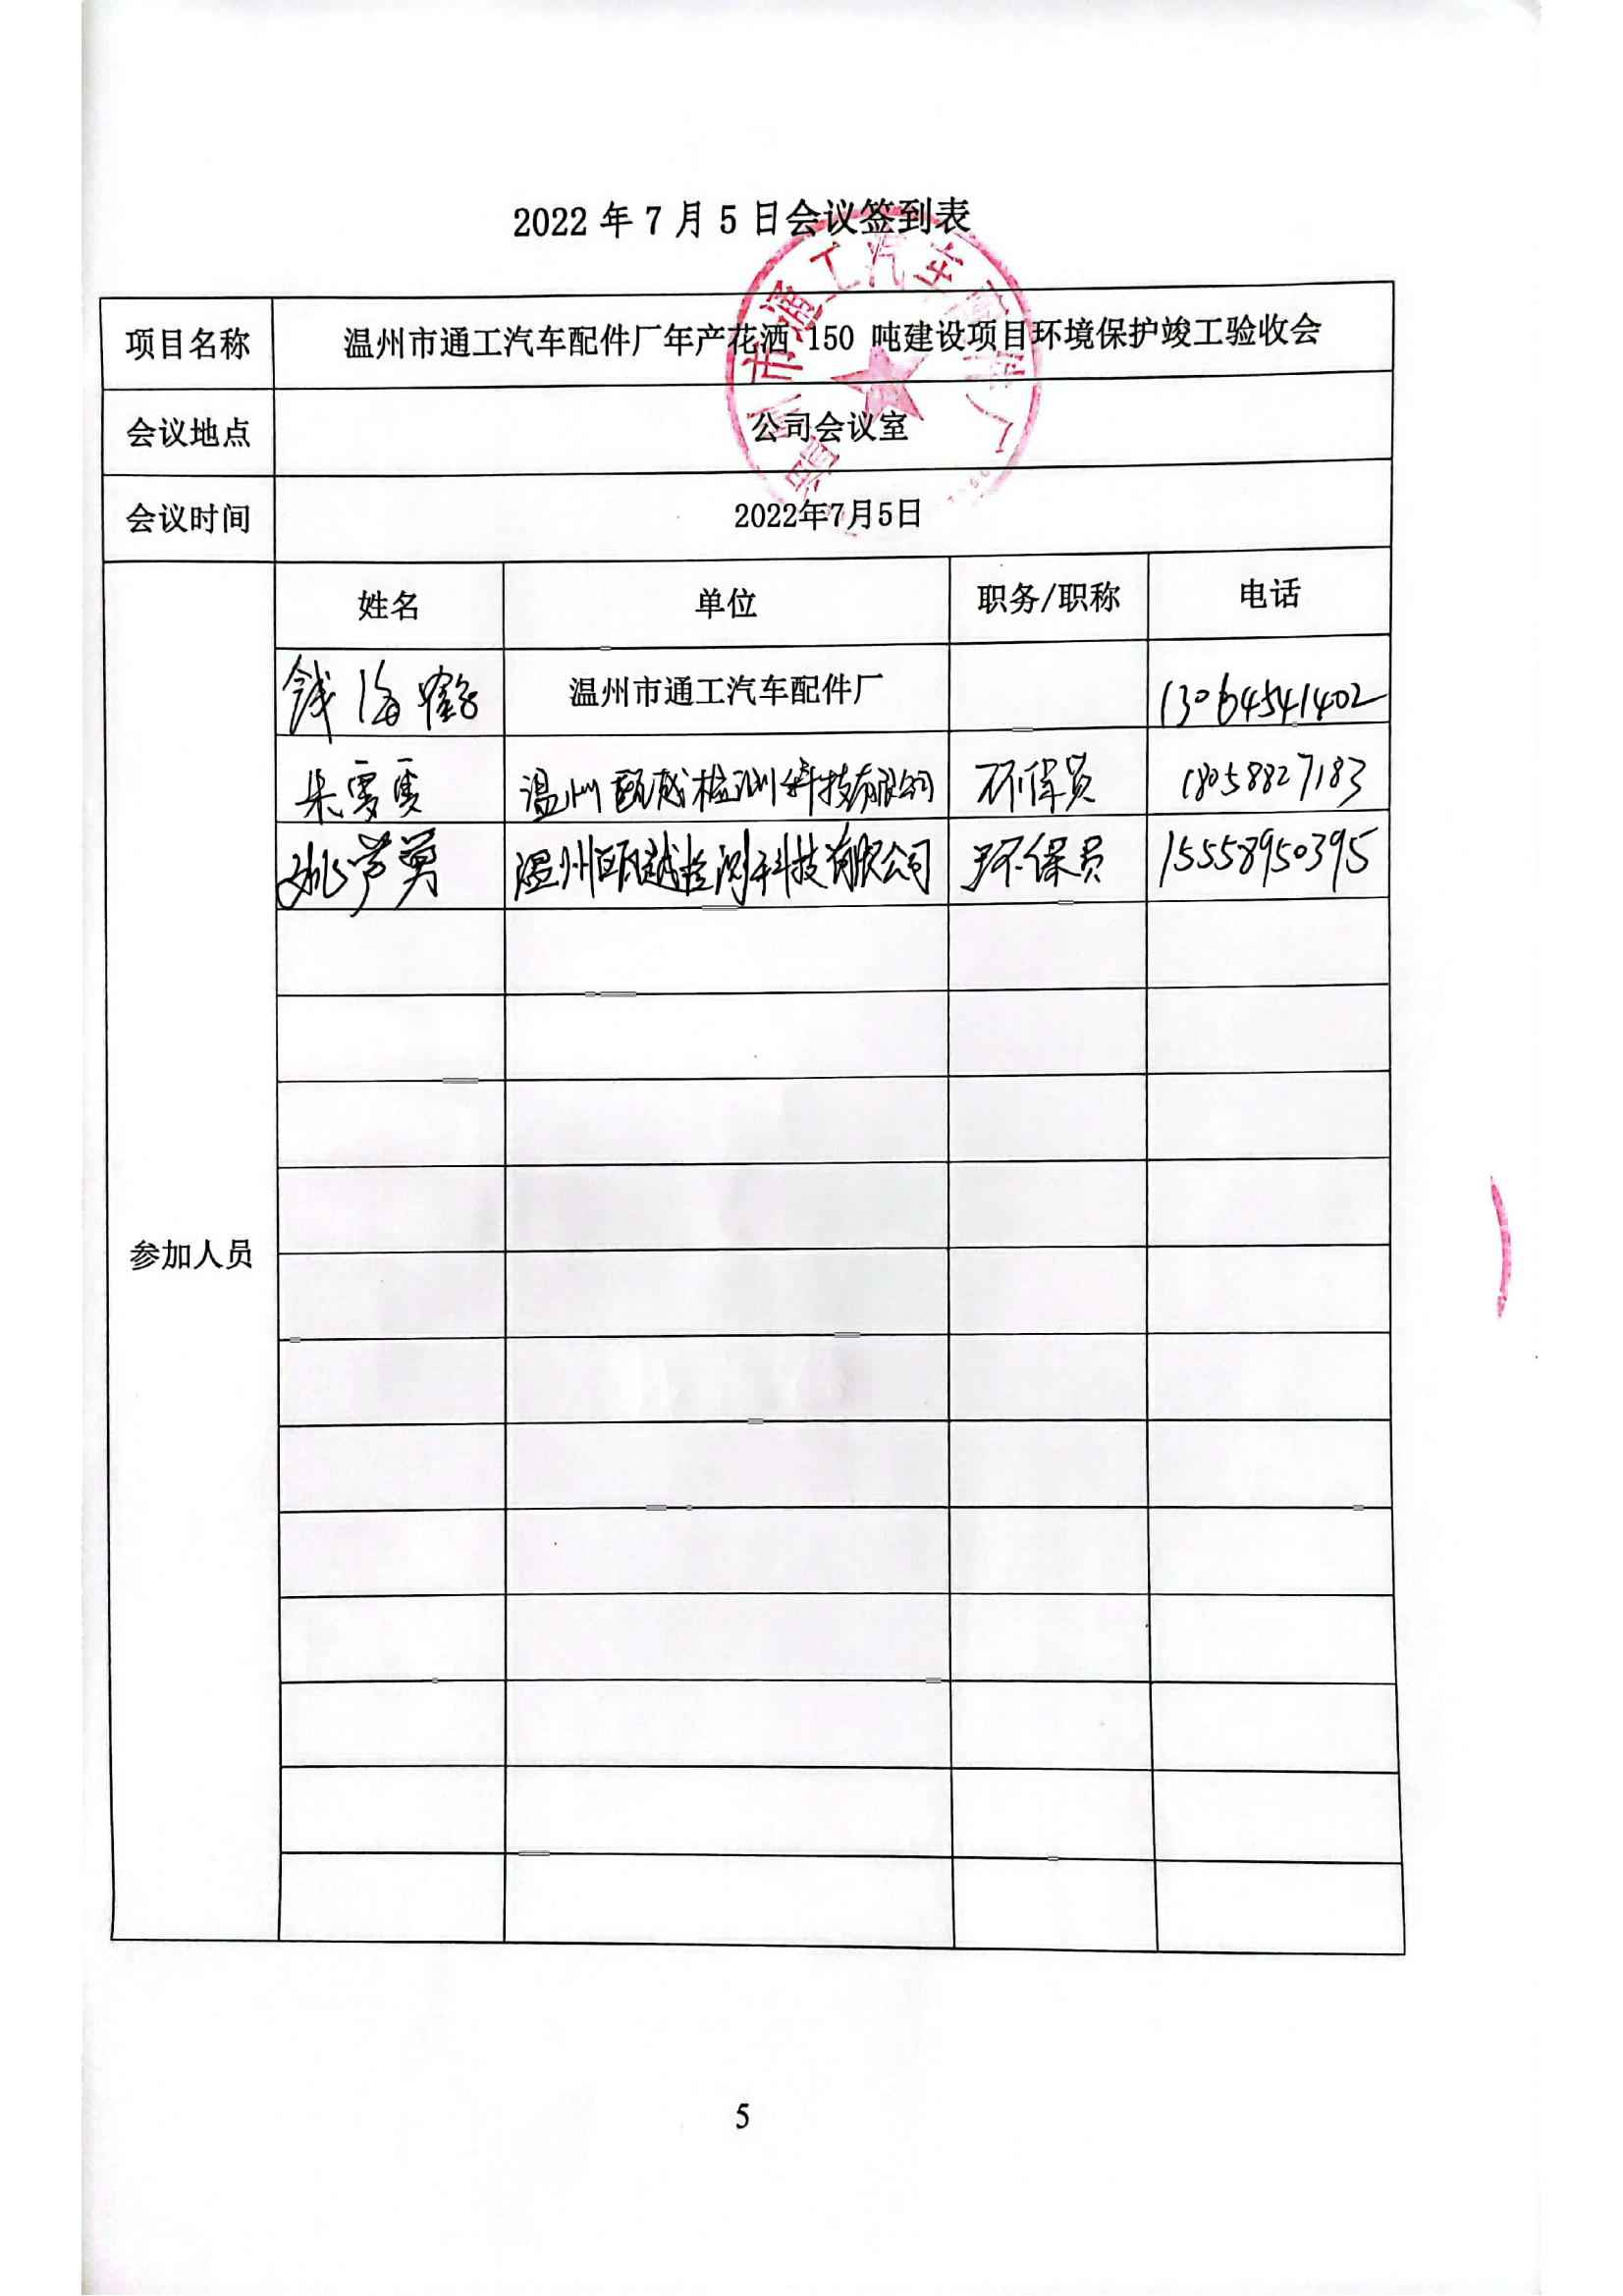 2022 年 7 月 5 日会议签到表
项目名称 温州市通工汽车配件厂年产花洒 150 吨建设项目环境保护竣工验收会
会议地点 公司会议室
会议时间 2022年7月5日
参加人员 姓名 单位 职务/职称 电话
钱海鹤 温州市通工汽车配件厂 13064541402
朱雪 温州瓯越检测科技有限公司 环保员 18058827183
姚芦勇 温州瓯越检测科技有限公司 环保员 15558950395
温州市通工汽车配件厂
5